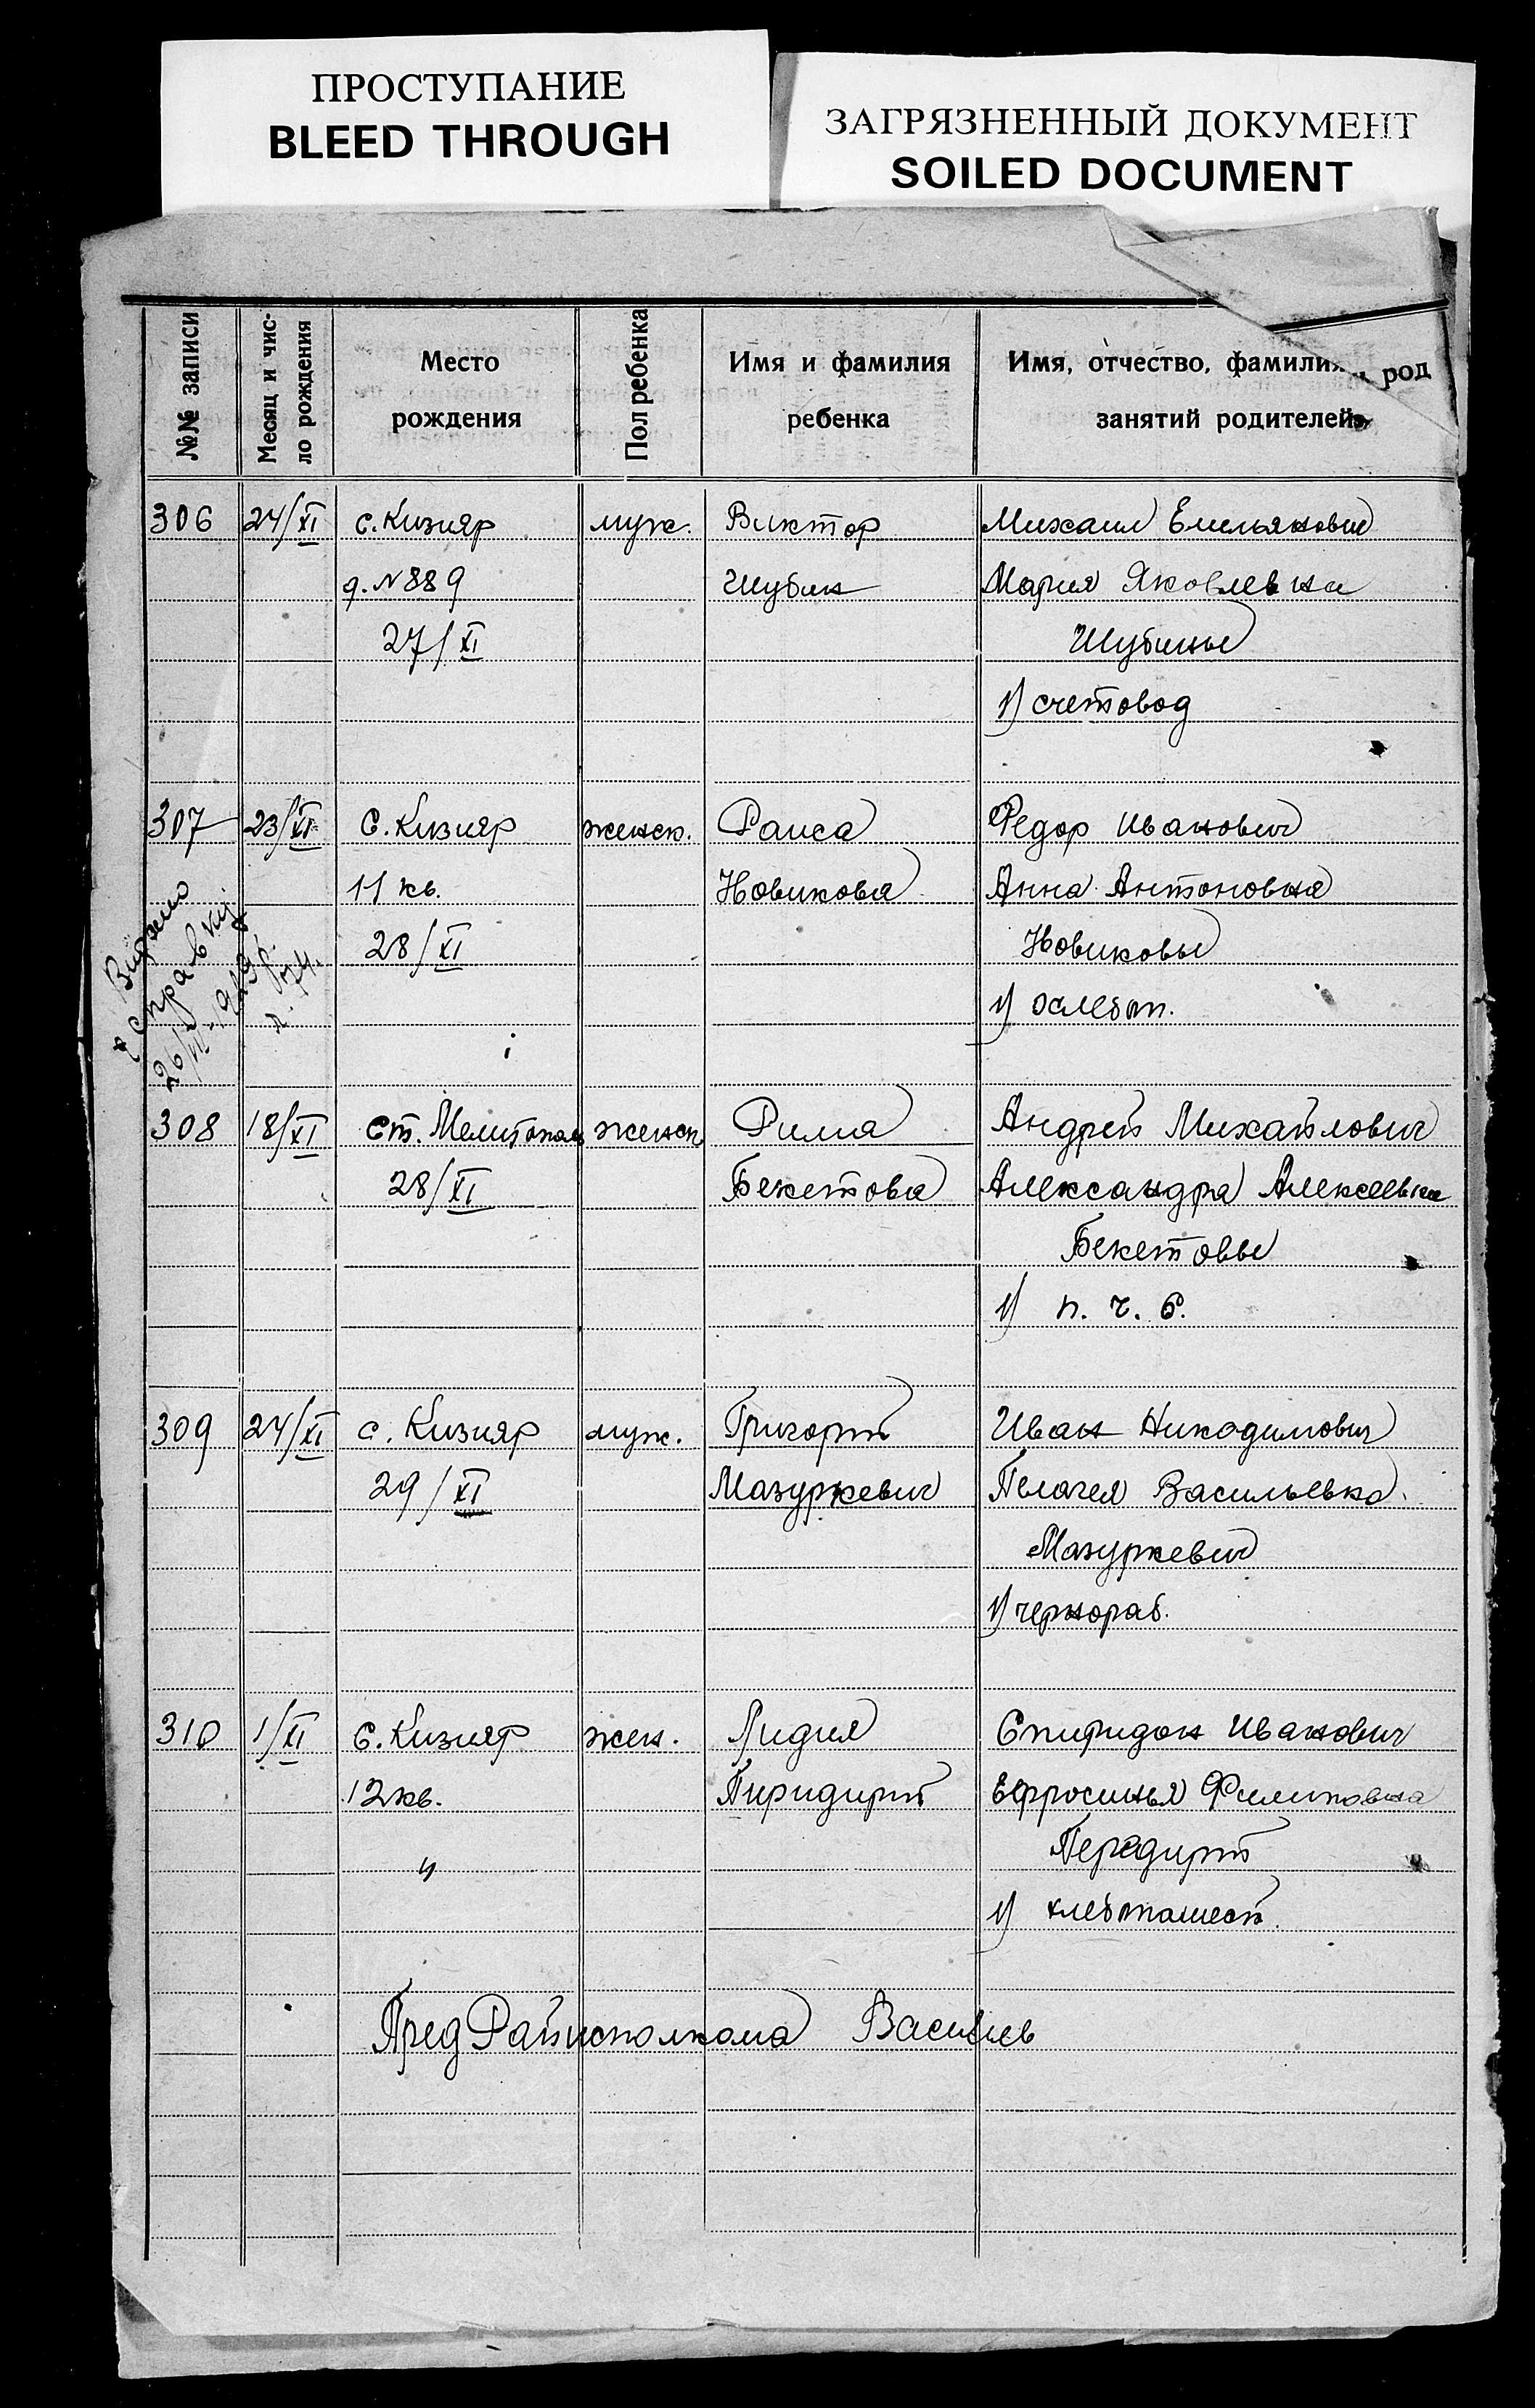 ПРОСТУПАНИЕ
BLEED THROUGH
ЗАГРЯЗНЕННЫЙ ДОКУМЕНТ
SOILED DOCUMENT
№№ записи
Месяц и чис-
ло рождения
Место
рождения
Пол ребенка
Имя и фамилия
ребенка
Имя, отчество, фамилия и род
занятий родителей
306 24/XI с. Кизияр муж. Виктор Михаил Емельянович
д. N 889 Шубин Мария Яковлевна
27/XI Шубины
1) счетовод
307 23/XI С. Кизияр женск. Раиса Федор Иванович
11 кв. Новикова Анна Антоновна
28/XI Новиковы
1)
Видано
справку
308 18/XI ст. Мелитополь женск. Рима Андрей Михайлович
28/XI Бекетова Александра Алексеевна
Бекетовы
1) п. ч. б.
309 24/XI с. Кизияр муж. Григорий Иван Никодимович
29/XI Мазуркевич Пелагея Васильевна
Мазуркевич
1) чернораб.
310 1/XI с. Кизияр жен. Лидия Спиридон Иванович
12 кв. Пиридирий Ефросинья Филиповна
" Передирий
1) хлебопашест.
Пред Райисполкома Васильев